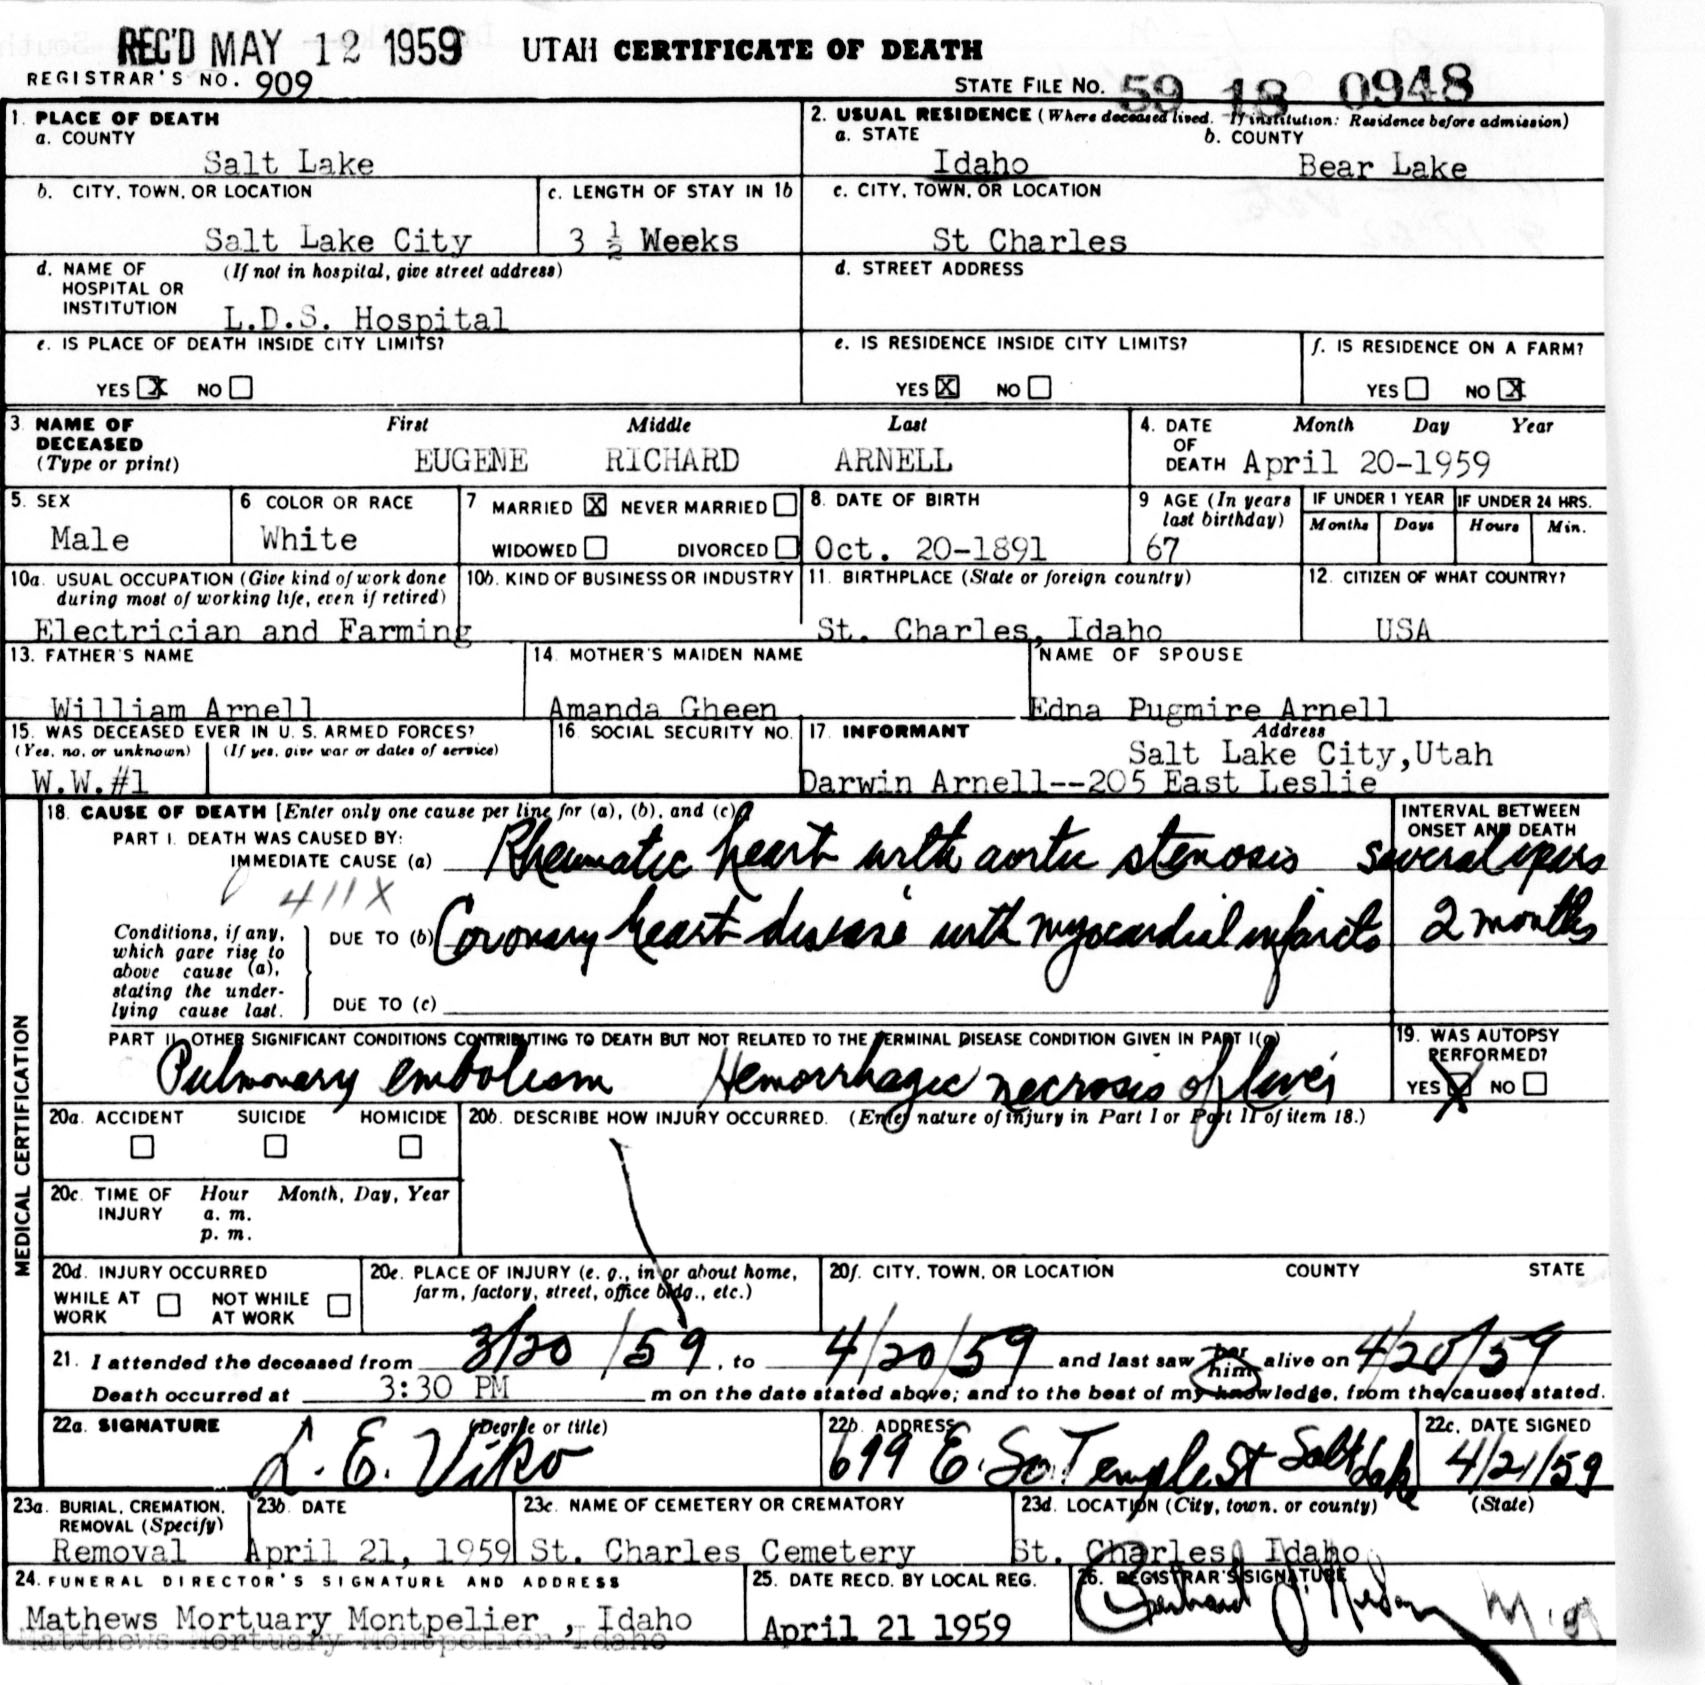 REC'D MAY 12 1959 UTAH CERTIFICATE OF DEATH
REGISTRAR'S NO. 909
STATE FILE NO. 59 18 0948
1. PLACE OF DEATH
a. COUNTY
Salt Lake
2. USUAL RESIDENCE (Where deceased lived. If institution: Residence before admission)
a. STATE b. COUNTY
Idaho Bear Lake
b. CITY, TOWN, OR LOCATION
Salt Lake City
c. LENGTH OF STAY IN 1b
3 ½ Weeks
c. CITY, TOWN, OR LOCATION
St Charles
d. NAME OF HOSPITAL OR INSTITUTION (If not in hospital, give street address)
L.D.S. Hospital
d. STREET ADDRESS
e. IS PLACE OF DEATH INSIDE CITY LIMITS?
YES X NO
e. IS RESIDENCE INSIDE CITY LIMITS?
YES X NO
f. IS RESIDENCE ON A FARM?
YES NO X
3. NAME OF DECEASED (Type or print)
First Middle Last
EUGENE RICHARD ARNELL
4. DATE OF DEATH
Month Day Year
April 20-1959
5. SEX
Male
6 COLOR OR RACE
White
7 MARRIED X NEVER MARRIED
WIDOWED DIVORCED
8. DATE OF BIRTH
Oct. 20-1891
9 AGE (In years last birthday)
67
IF UNDER 1 YEAR IF UNDER 24 HRS.
Months Days Hours Min.
10a. USUAL OCCUPATION (Give kind of work done during most of working life, even if retired)
Electrician and Farming
10b. KIND OF BUSINESS OR INDUSTRY
11. BIRTHPLACE (State or foreign country)
St. Charles, Idaho
12. CITIZEN OF WHAT COUNTRY?
USA
13. FATHER'S NAME
William Arnell
14. MOTHER'S MAIDEN NAME
Amanda Gheen
NAME OF SPOUSE
Edna Pugmire Arnell
15. WAS DECEASED EVER IN U. S. ARMED FORCES?
(Yes, no, or unknown) (If yes, give war or dates of service)
W.W.#1
16. SOCIAL SECURITY NO.
17. INFORMANT Address
Salt Lake City,Utah
Darwin Arnell--205 East Leslie
MEDICAL CERTIFICATION
18. CAUSE OF DEATH [Enter only one cause per line for (a), (b), and (c)]
INTERVAL BETWEEN ONSET AND DEATH
PART I. DEATH WAS CAUSED BY:
IMMEDIATE CAUSE (a) Rheumatic heart with aortic stenosis several years
411X
Conditions, if any, which gave rise to above cause (a), stating the underlying cause last.
DUE TO (b) Coronary heart disease with myocardial infarcts 2 months
DUE TO (c)
PART II. OTHER SIGNIFICANT CONDITIONS CONTRIBUTING TO DEATH BUT NOT RELATED TO THE TERMINAL DISEASE CONDITION GIVEN IN PART I(a)
Pulmonary embolism Hemorrhagic necrosis of liver
19. WAS AUTOPSY PERFORMED?
YES X NO
20a. ACCIDENT SUICIDE HOMICIDE
20b. DESCRIBE HOW INJURY OCCURRED. (Enter nature of injury in Part I or Part II of item 18.)
20c. TIME OF INJURY Hour Month, Day, Year
a. m.
p. m.
20d. INJURY OCCURRED
WHILE AT WORK NOT WHILE AT WORK
20e. PLACE OF INJURY (e. g., in or about home, farm, factory, street, office bldg., etc.)
20f. CITY, TOWN, OR LOCATION COUNTY STATE
21. I attended the deceased from 3/20/59, to 4/20/59 and last saw her him alive on 4/20/59
Death occurred at 3:30 PM m on the date stated above; and to the best of my knowledge, from the causes stated.
22a. SIGNATURE (Degree or title)
L. E. Viko
22b. ADDRESS
699 E. So. Temple St Salt Lake
22c. DATE SIGNED
4/21/59
23a. BURIAL, CREMATION, REMOVAL (Specify)
Removal
23b. DATE
April 21, 1959
23c. NAME OF CEMETERY OR CREMATORY
St. Charles Cemetery
23d. LOCATION (City, town, or county) (State)
St. Charles, Idaho
24. FUNERAL DIRECTOR'S SIGNATURE AND ADDRESS
Mathews Mortuary Montpelier , Idaho
Matthews Mortuary Montpelier Idaho
25. DATE RECD. BY LOCAL REG.
April 21 1959
26. REGISTRAR'S SIGNATURE